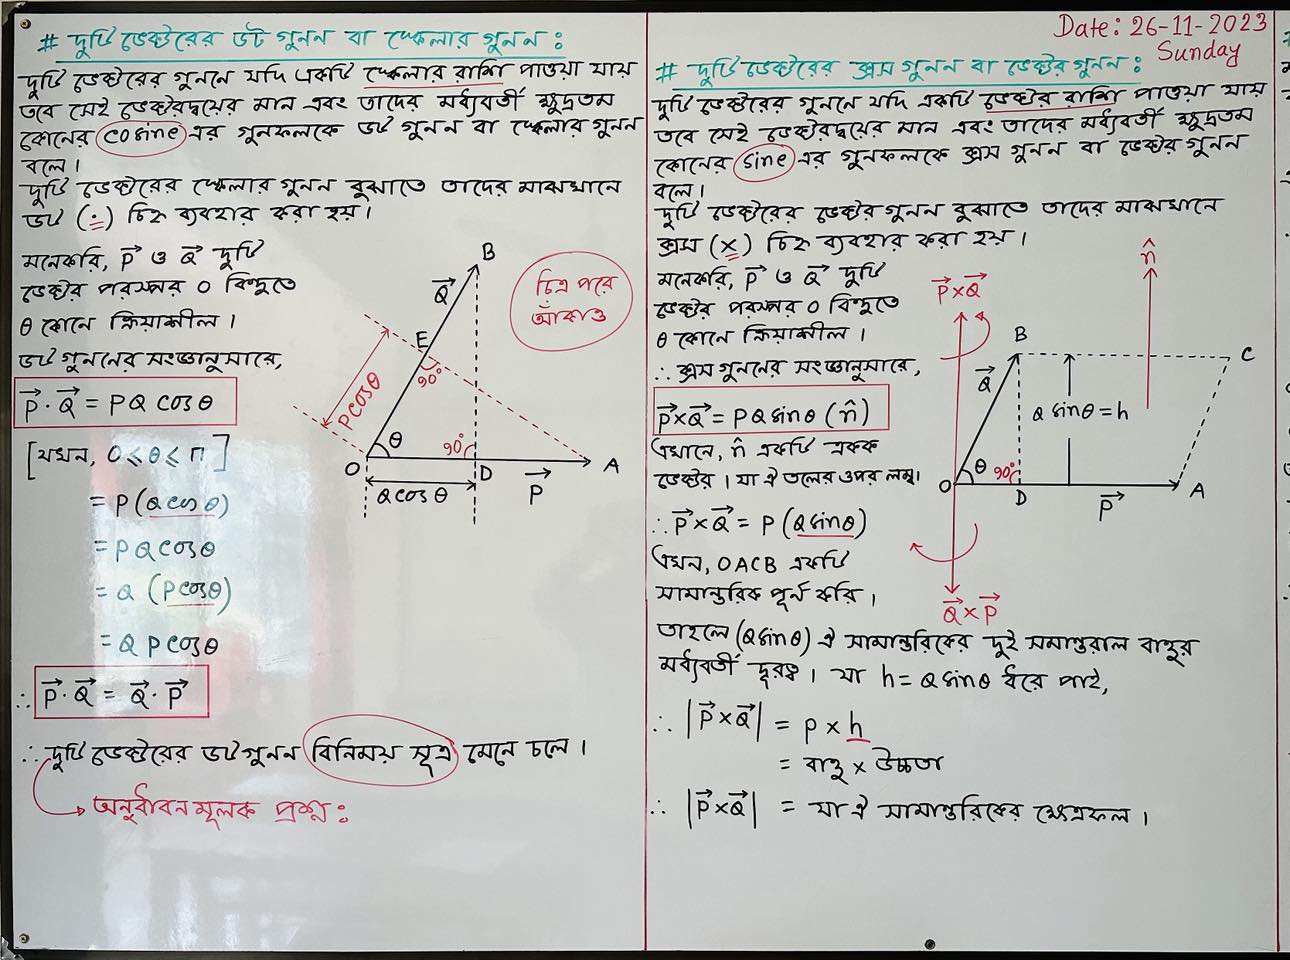 # দুটি ভেক্টরের ডট গুনন বা স্কেলার গুনন :
দুটি ভেক্টরের গুননে যদি একটি স্কেলার রাশি পাওয়া যায়
তবে সেই ভেক্টরদ্বয়ের মান এবং তাদের মর্ধ্যবর্তী ক্ষুদ্রতম
কোনের cosine এর গুনফলকে ডট গুনন বা স্কেলার গুনন
বলে।
দুটি ভেক্টরের স্কেলার গুনন বুঝাতে তাদের মাঝখানে
ডট (·) চিহ্ন ব্যবহার করা হয়।
মনেকরি, P⃗ ও Q⃗ দুটি
ভেক্টর পরস্পর O বিন্দুতে
θ কোনে ক্রিয়াশীল।
ডট গুননের সংজ্ঞানুসারে,
P⃗ · Q⃗ = PQ cosθ
[যখন, 0 ⩽ θ ⩽ π]
= P (Q cos θ)
= PQ cosθ
= Q (P cosθ)
= Q P cosθ
∴ P⃗ · Q⃗ = Q⃗ · P⃗
∴ দুটি ভেক্টরের ডট গুনন বিনিময় সূত্র মেনে চলে।
অনুর্ধাবন মূলক প্রশ্ন :
চিত্র পরে
আঁকাও
B
Q⃗
E
90°
P cosθ
θ
90°
O
D
A
Q cos θ
P⃗
Date: 26-11-2023
Sunday
# দুটি ভেক্টরের ক্রস গুনন বা ভেক্টর গুনন :
দুটি ভেক্টরের গুননে যদি একটি ভেক্টর রাশি পাওয়া যায়
তবে সেই ভেক্টরদ্বয়ের মান এবং তাদের মর্ধ্যবর্তী ক্ষুদ্রতম
কোনের sine এর গুনফলকে ক্রস গুনন বা ভেক্টর গুনন
বলে।
দুটি ভেক্টরের ভেক্টর গুনন বুঝাতে তাদের মাঝখানে
ক্রস (×) চিহ্ন ব্যবহার করা হয়।
মনেকরি, P⃗ ও Q⃗ দুটি
ভেক্টর পরস্পর O বিন্দুতে
θ কোনে ক্রিয়াশীল।
∴ ক্রস গুননের সংজ্ঞানুসারে,
P⃗×Q⃗ = PQ sinθ (n̂)
এখানে, n̂ একটি একক
ভেক্টর। যা ঐ তলের ওপর লম্ব।
∴ P⃗×Q⃗ = P (Q sinθ)
এখন, OACB একটি
সামান্তরিক পূর্ন করি।
তাহলে (Q sinθ) ঐ সামান্তরিকের দুই সমান্তরাল বাহুর
মর্ধ্যবর্তী দূরত্ব। যা h = Q sinθ ধরে পাই,
∴ |P⃗×Q⃗| = P × h
= বাহু × উচ্চতা
∴ |P⃗×Q⃗| = যা ঐ সামান্তরিকের ক্ষেত্রফল।
P⃗×Q⃗
n̂
B
C
Q⃗
Q sinθ = h
θ
90°
O
D
A
P⃗
Q⃗×P⃗